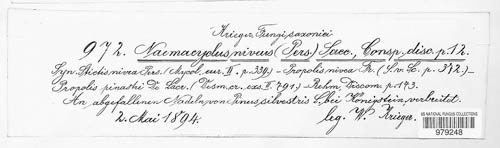 Krieger, Fungi saxonici
972. Naemacyclus niveus (Pers.) Sacc., Consp. disc. p. 12.
Syn. Stictis nivea Pers. (Mycol. eur. II. p. 339.) – Propolis nivea Fr. (S. v. S. p. 372.) –
Propolis pinastri De Lacr. (Desm. cr. exs. II. 791.) – Rehm, Discom. p. 143.
An abgefallenen Nadeln von Pinus silvestris L. bei Königstein, verbreitet.
2. Mai 1894. leg. W. Krieger.
US NATIONAL FUNGUS COLLECTIONS
979248